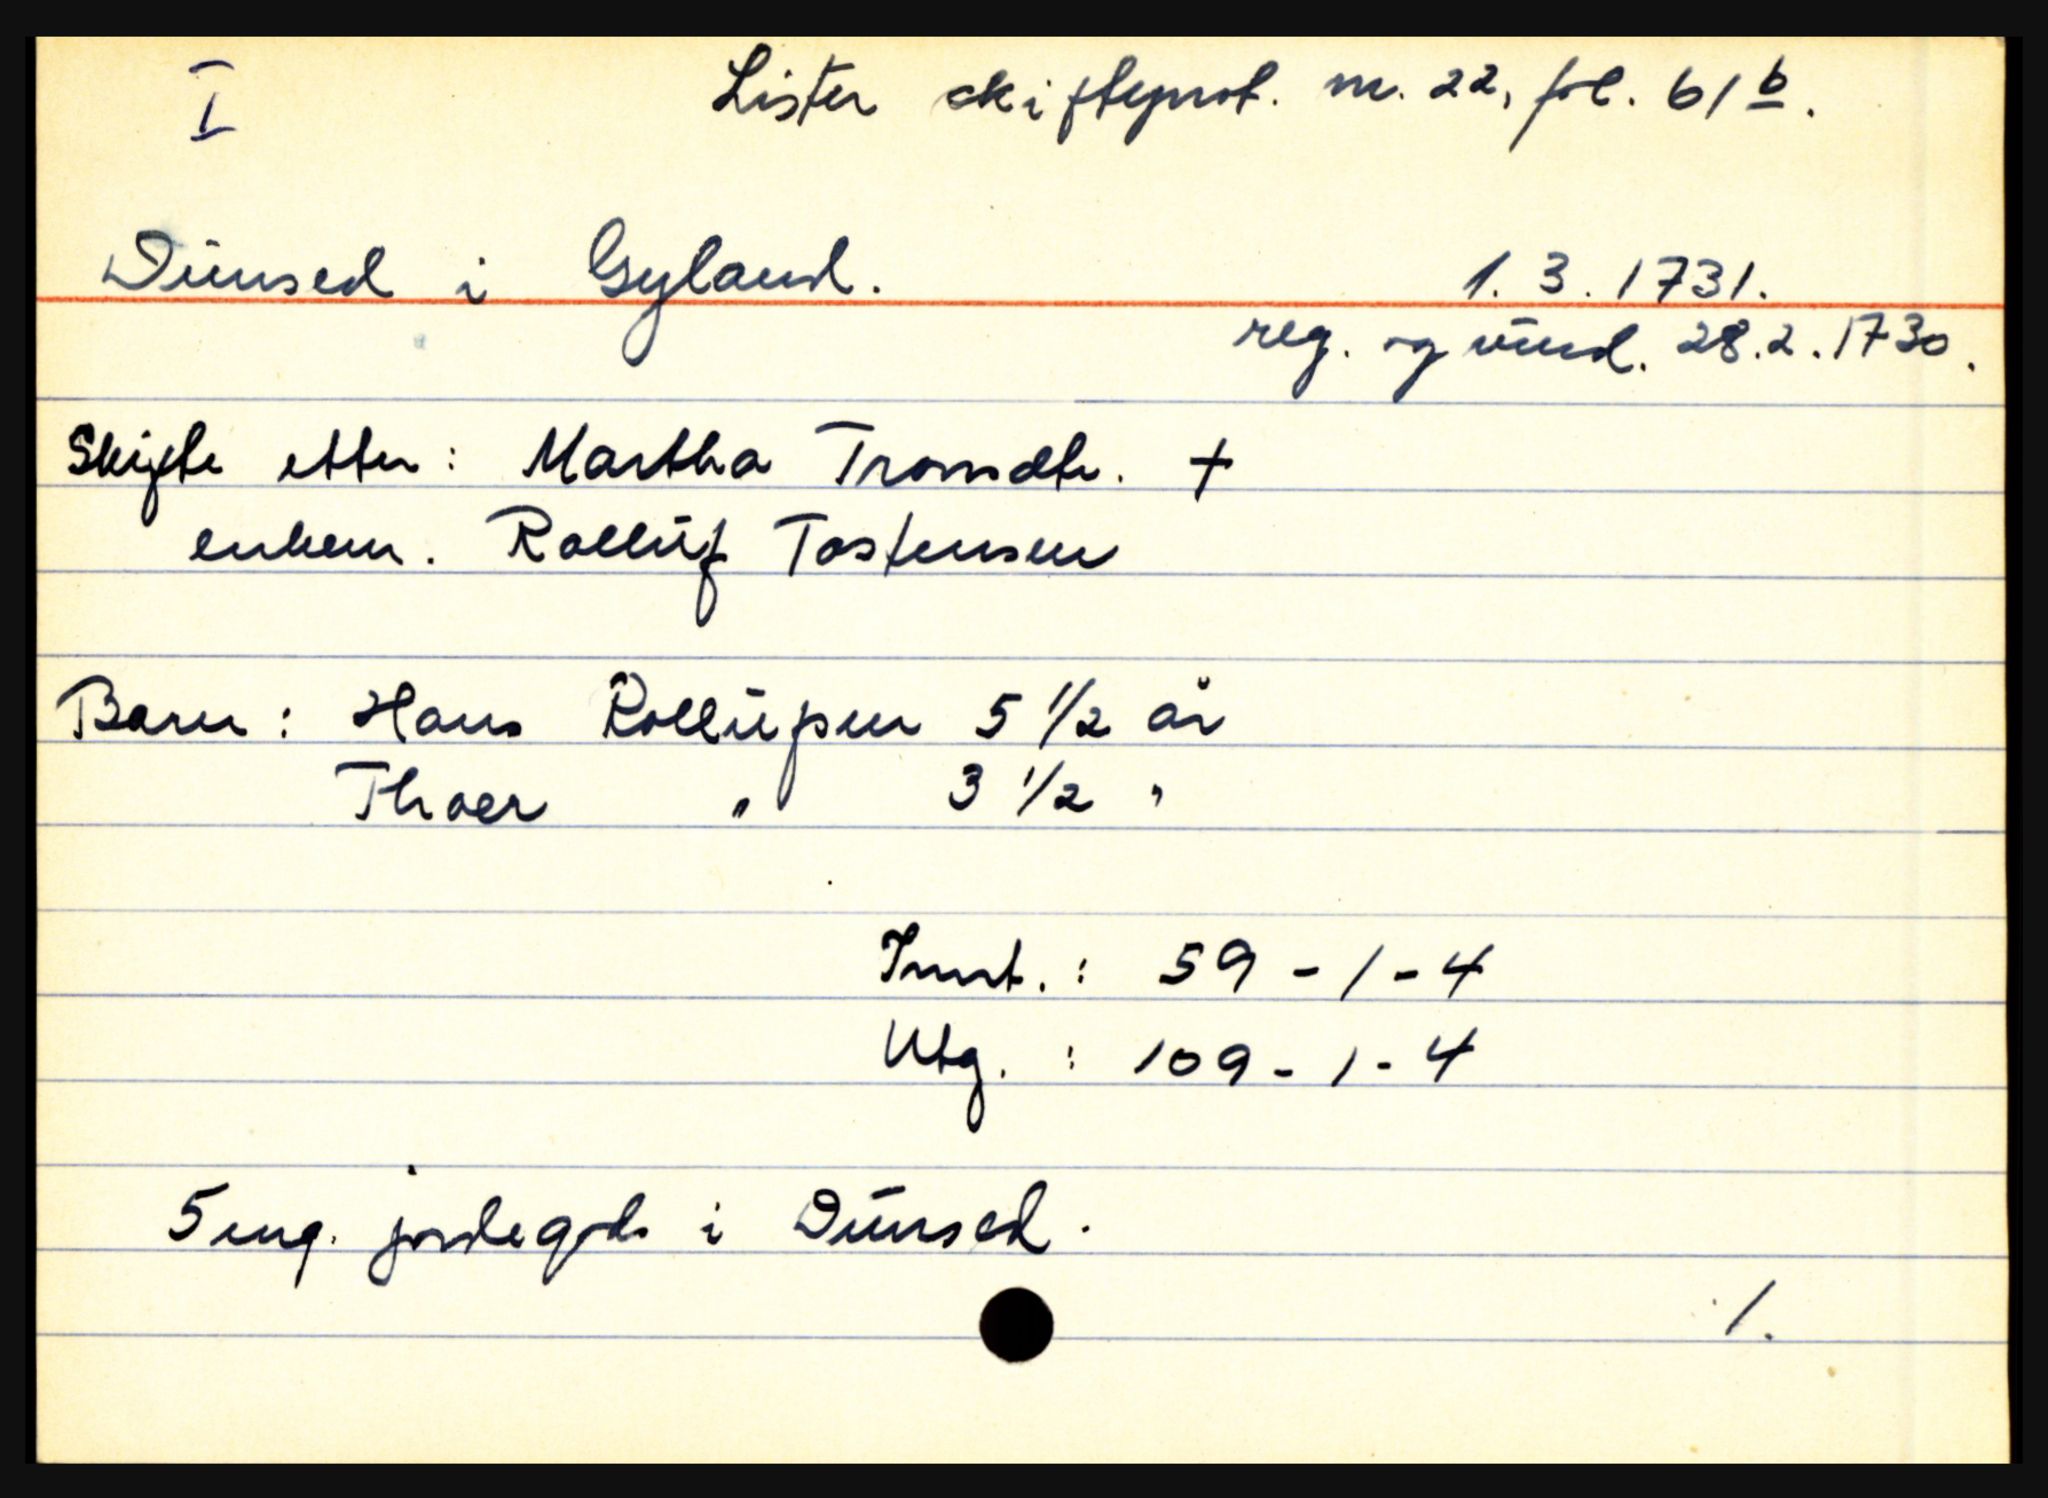 I
Lister skifteprot. nr. 22, fol. 61 b.
Dunsed i Gyland.
1. 3. 1731.
reg. og vurd. 28.2.1730.
Skifte etter: Martha Tronsdtr. +
enkem. Rolluf Tostensen
Barn: Hans Rollufsen 5 1/2 år
Thoer " 3 1/2 "
Innt. : 59 - 1 - 4
Utg. : 109 - 1 - 4
5 eng. jordegods i Dunsed.
/.